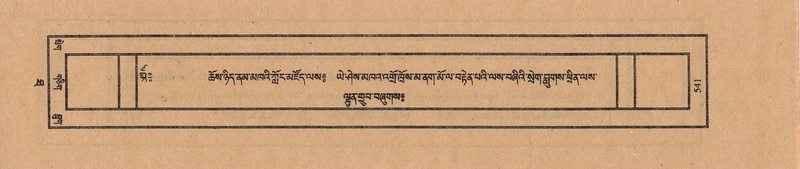 ཆོས་ཉིད་ནམ་མཁའི་ཀློང་མཛོད་ལས༔ ཡེ་ཤེས་མཁའ་འགྲོ་ཁྲོས་མ་ནག་མོ་ལ་བརྟེན་པའི་ལས་བཞིའི་སྲེག་བླུགས་ཕྲིན་ལས་
ལྷུན་གྲུབ་བཞུགས༔
541